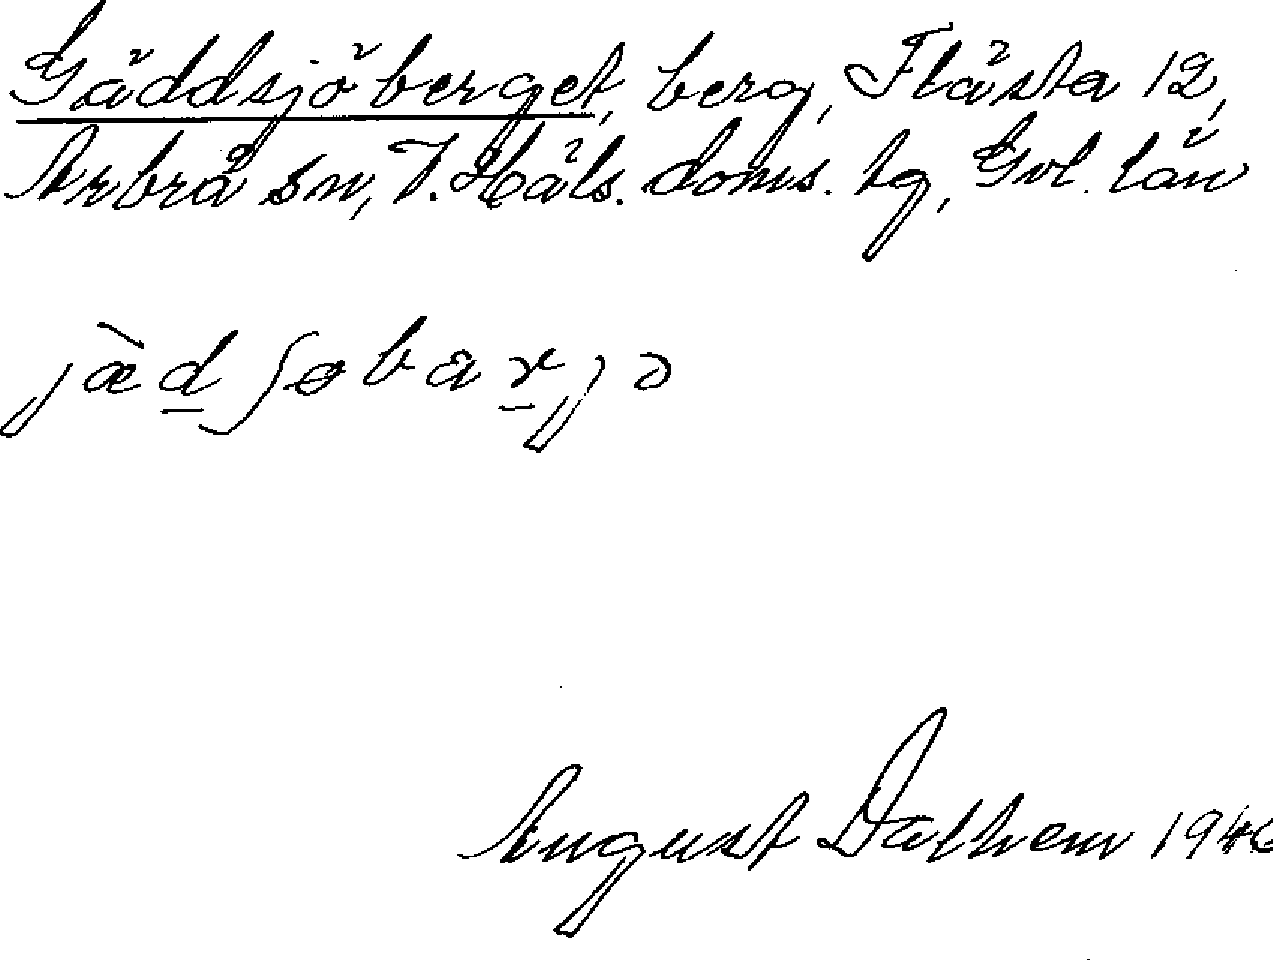 Gäddsjöberget, berg, Flästa 12,
Arbrå sn, V. Häls. doms. tg, Gvl. län
jæ̀d̲ʃøbar̲jə
August Dalhem 194